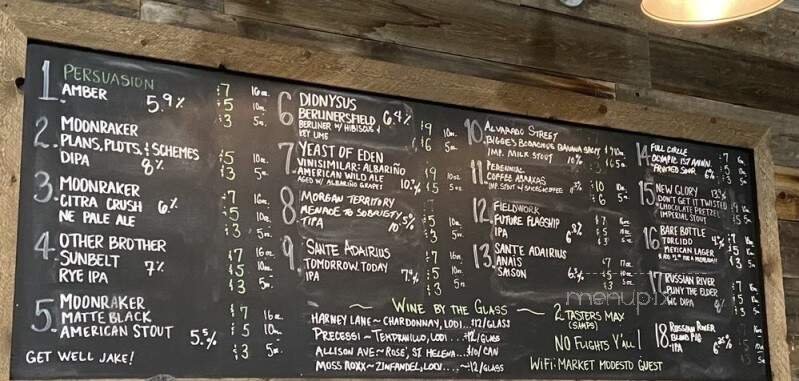 1. PERSUASION
AMBER 5.9%
$7 16oz.
$5 10oz.
$3 5oz.
2. MOONRAKER
PLANS, PLOTS, & SCHEMES
DIPA 8%
$5 10oz.
$3 5oz.
3. MOONRAKER
CITRA CRUSH 6%
NE PALE ALE
$7 16oz.
$5 10oz.
$3 5oz.
4. OTHER BROTHER
SUNBELT 7%
RYE IPA
$7 16oz.
$5 10oz.
$3 5oz.
5. MOONRAKER
MATTE BLACK
AMERICAN STOUT 5.5%
$7 16oz.
$5 10oz.
$3 5oz.
GET WELL JAKE!
6 DIONYSUS
BERLINERSFIELD 6.4%
BERLINER W/ HIBISCUS &
KEY LIME
$9 10oz.
$6 5oz.
7 YEAST OF EDEN
VINISIMILAR: ALBARIÑO
AMERICAN WILD ALE
AGED W/ ALBARIÑO GRAPES
$9 10oz.
$5 5oz.
8 MORGAN TERRITORY
MENACE TO SOBRIETY
TIPA 10.5%
$5 10oz.
$3 5oz.
9. SANTE ADAIRIUS
TOMORROW. TODAY
IPA
$7 16oz.
$5 10oz.
$3 5oz.
10 ALVARADO STREET
IMP. MILK STOUT 10%
11 PERENNIAL
COFFEE ABRAXAS
12 FIELDWORK
FUTURE FLAGSHIP
IPA
13. SANTE ADAIRIUS
ANAIS
SAISON
14 FULL CIRCLE
FRUITED SOUR
15 NEW GLORY
DON'T GET IT TWISTED
CHOCOLATE PRETZEL
IMPERIAL STOUT
16 BARE BOTTLE
TORCIDO
MEXICAN LAGER
17 RUSSIAN RIVER
PLINY THE ELDER
DIPA 8%
18. RUSSIAN RIVER
BLIND PIG
IPA
WINE BY THE GLASS
HARNEY LANE ~ CHARDONNAY, LODI...$12/GLASS
PRECESSI ~ TEMPRANILLO, LODI....$12/GLASS
ALLISON AVE ~ ROSÉ, ST HELENA...$10/CAN
MOSS ROXX ~ ZINFANDEL, LODI.....$12/GLASS
2 TASTERS MAX
(5AMPS)
NO FLIGHTS Y'ALL!
WIFI: MARKET MODESTO GUEST
menupix